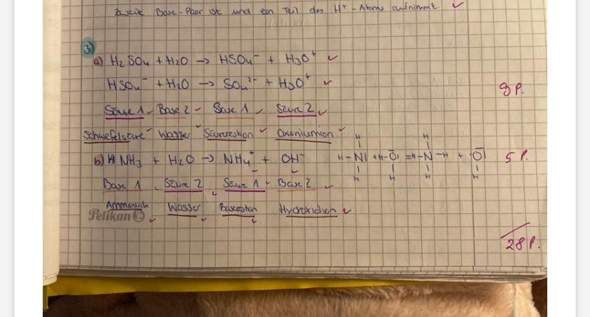 zweite Base-Paar ist und ein Teil des H⁺-Atoms aufnimmt ✓
3)
a) H₂SO₄ + H₂O → HSO₄⁻ + H₃O⁺ ✓
HSO₄⁻ + H₂O → SO₄²⁻ + H₃O⁺ ✓
8 P.
Säure 1 Base 2 Base 1 Säure 2
Schwefelsäure Wasser Säurerestion Oxoniumion
b) NH₃ + H₂O → NH₄⁺ + OH⁻
5 P.
Base 1 Säure 2 Säure 1 Base 2
Ammoniak Wasser Hydroxidion
Pelikan
28 P.